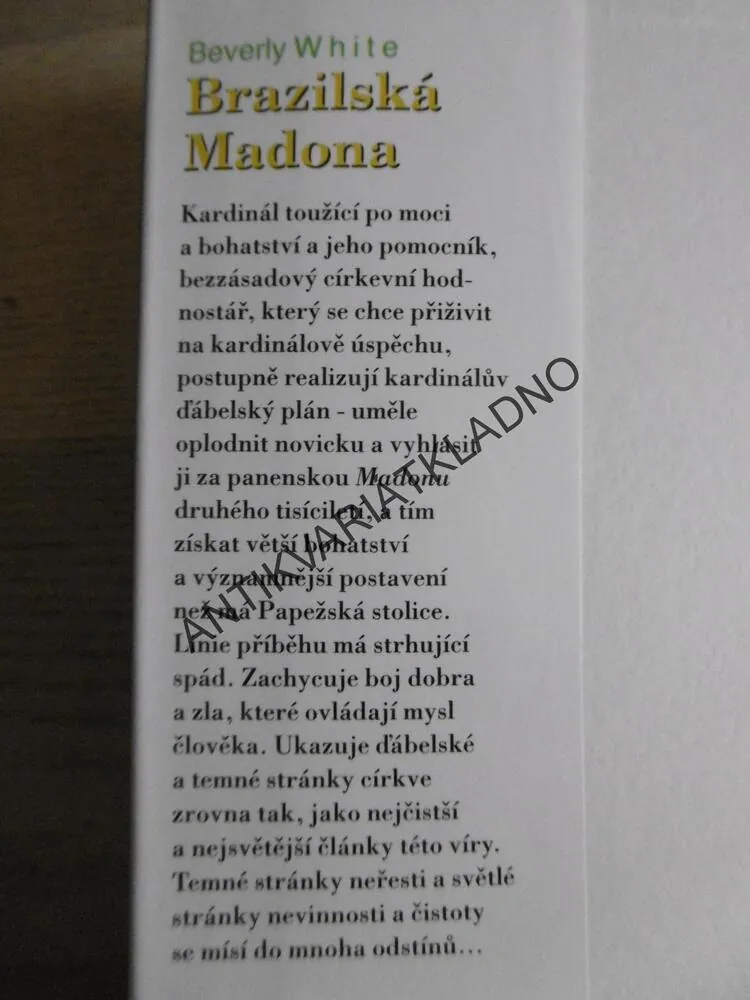 Beverly White
Brazilská
Madona
Kardinál toužící po moci
a bohatství a jeho pomocník,
bezzásadový církevní hod-
nostář, který se chce přiživit
na kardinálově úspěchu,
postupně realizují kardinálův
ďábelský plán - uměle
oplodnit novicku a vyhlásit
ji za panenskou Madonu
druhého tisíciletí, a tím
získat větší bohatství
a významnější postavení
než má Papežská stolice.
Linie příběhu má strhující
spád. Zachycuje boj dobra
a zla, které ovládají mysl
člověka. Ukazuje ďábelské
a temné stránky církve
zrovna tak, jako nejčistší
a nejsvětější články této víry.
Temné stránky neřesti a světlé
stránky nevinnosti a čistoty
se mísí do mnoha odstínů...
ANTIKVARIATKLADNO